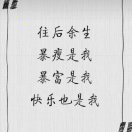 往后余生
暴瘦是我
暴富是我
快乐也是我